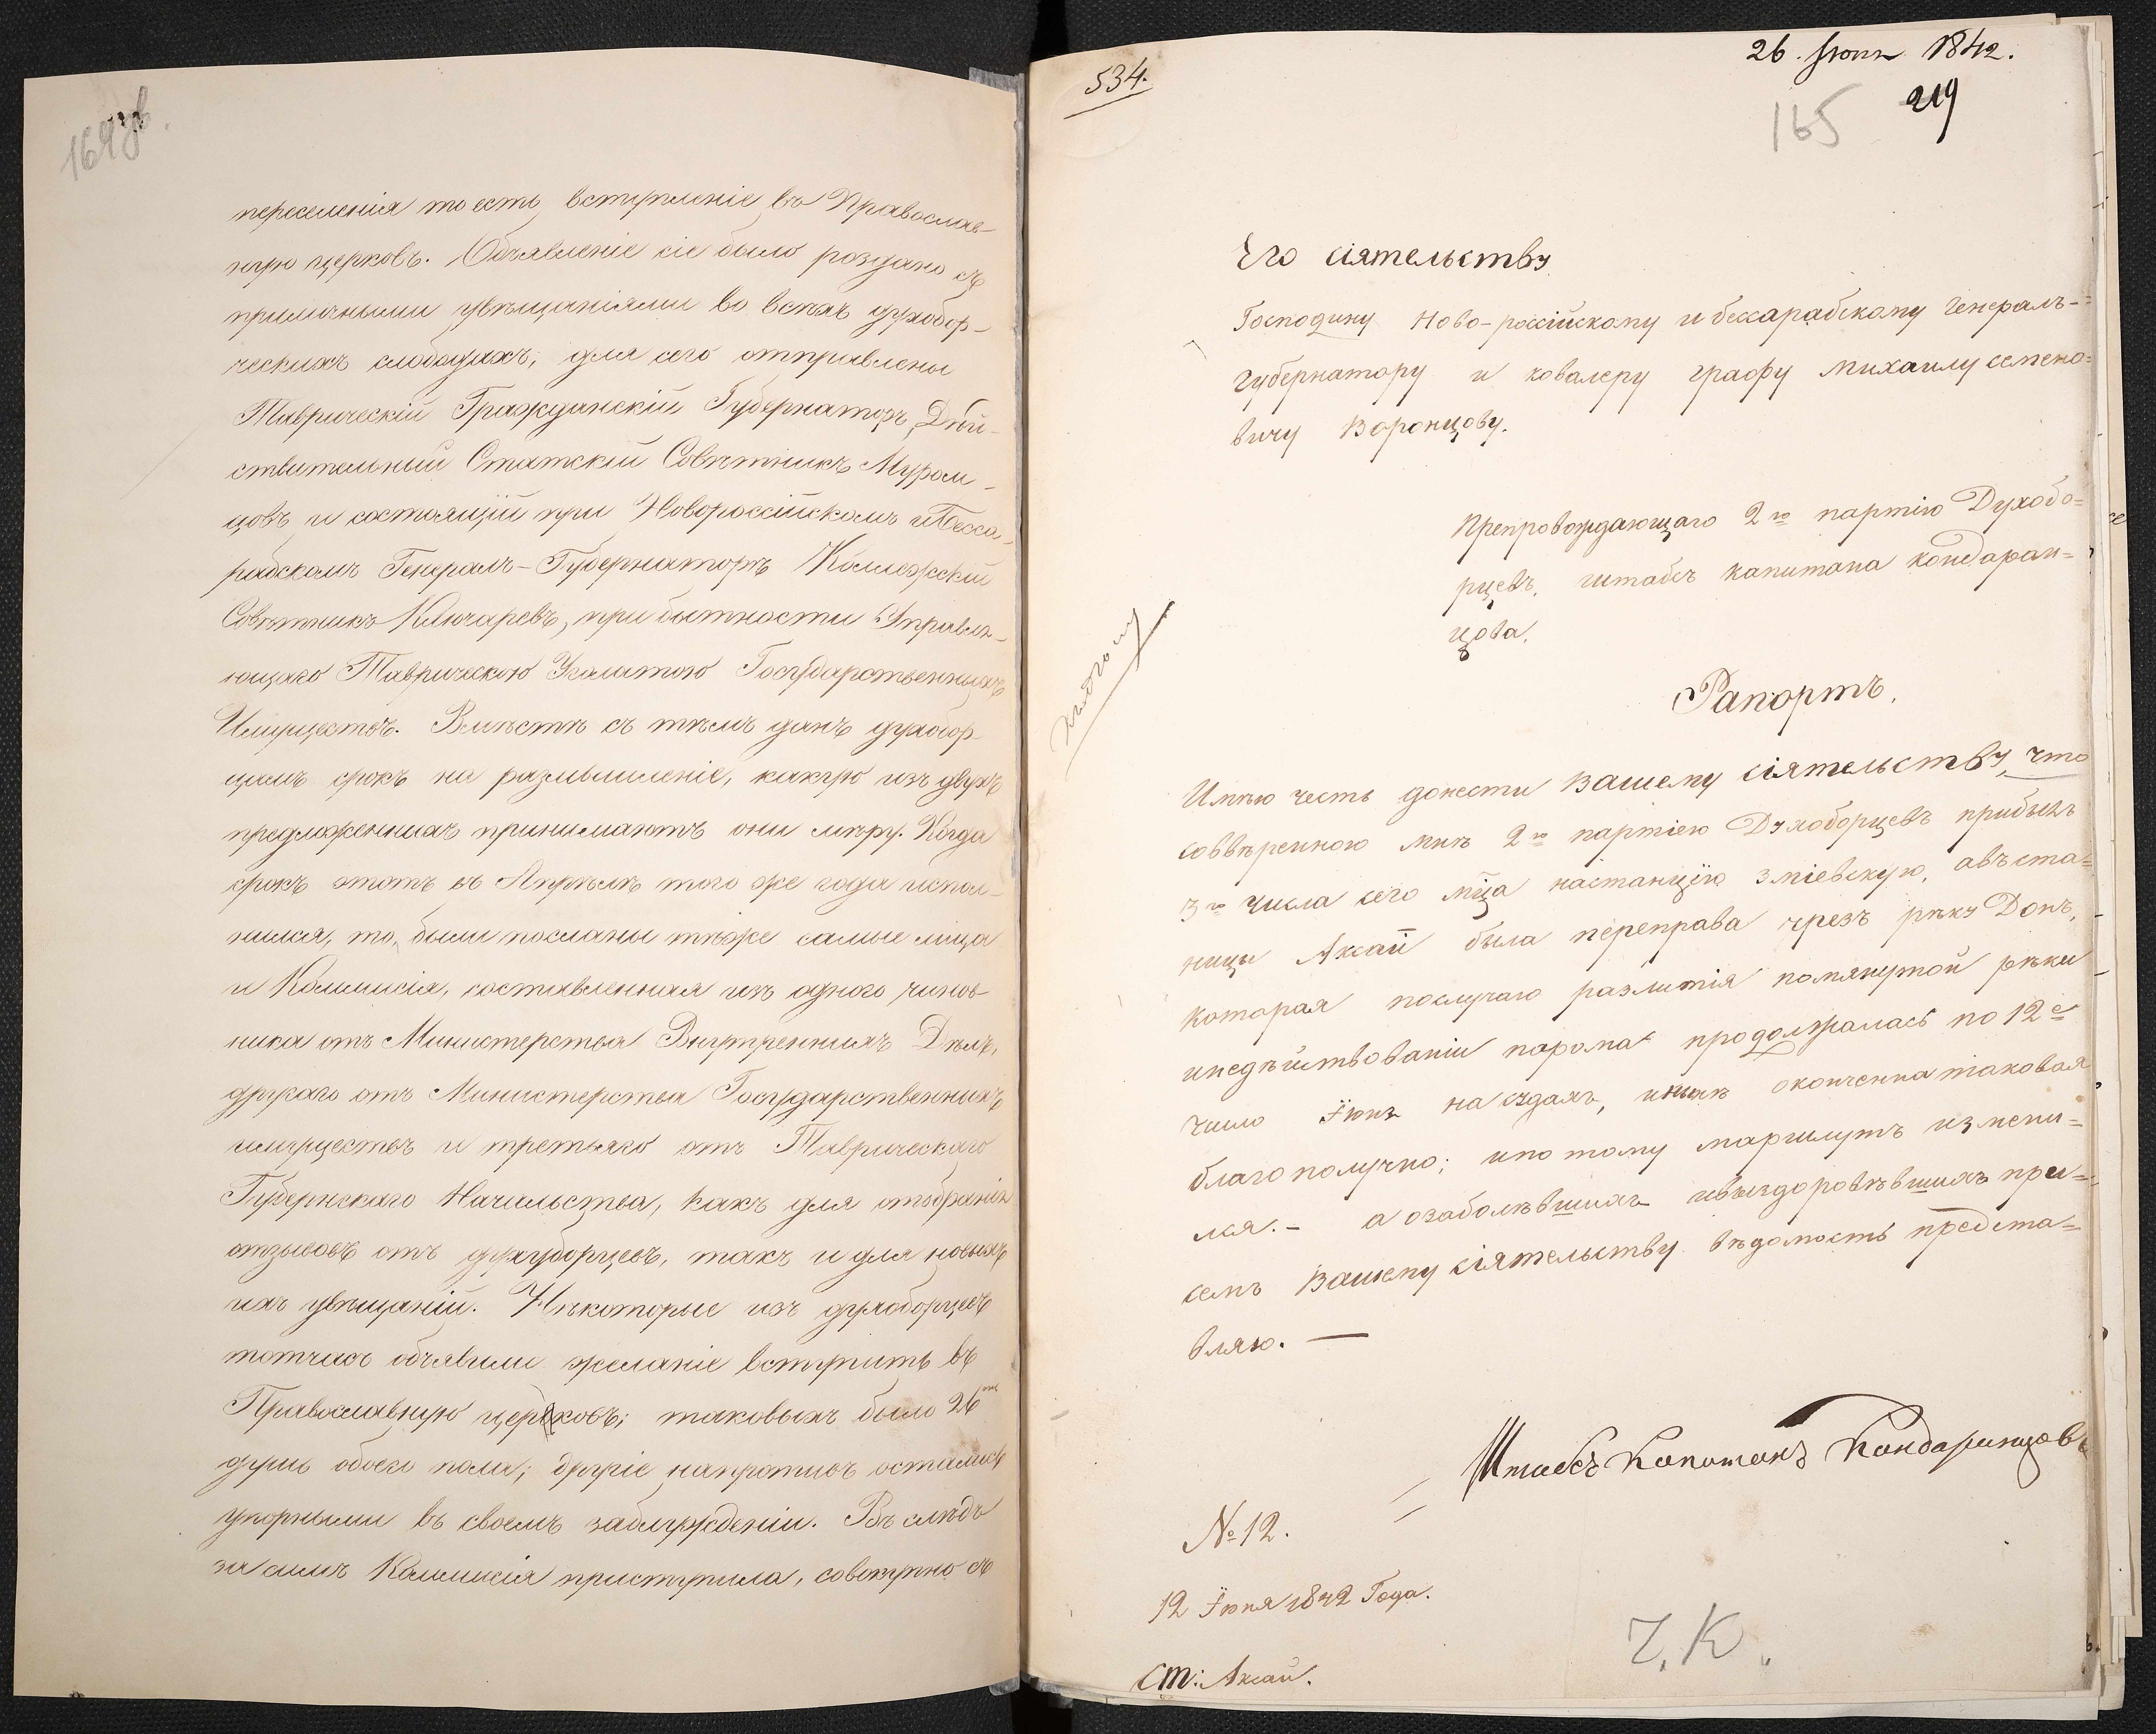 164 об.
переселенія то есть вступленіе въ Православ-
ную церковь. Объявленіе сіе было роздано съ
приличными увѣщаніями во всѣхъ духобор-
ческихъ слободахъ; для сего отправлены
Таврическій Гражданскій Губернаторъ, Дѣй-
ствительный Статскій Совѣтникъ Муром-
цовъ и состоящій при Новороссійскомъ и Бесса-
рабскомъ Генералъ-Губернаторѣ Коллежскій
Совѣтникъ Ключаревъ, при бытности Управля-
ющаго Таврическою Палатою Государственныхъ
Имуществъ. Вмѣстѣ съ тѣмъ данъ духобор-
цамъ срокъ на размышленіе, какую изъ двухъ
предложенныхъ принимаютъ они мѣру. Когда
срокъ этотъ въ Апрѣлѣ того же года испол-
нился, то, были посланы тѣже самые лица
и Коммисія, составленная изъ одного чинов-
ника отъ Министерства Внутреннихъ Дѣлъ,
другаго отъ Министерства Государственныхъ
имуществъ и третьяго отъ Таврическаго
Губернскаго Начальства, какъ для отобранія
отзывовъ отъ духоборцевъ, такъ и для новыхъ
имъ увѣщаній. Нѣкоторые изъ духоборцевъ
тотчасъ объявили желаніе вступить въ
Православную церковь; таковыхъ было 26
душъ обоего пола; другіе напротивъ остались
упорными въ своемъ заблужденіи. Въ слѣдъ
за симъ Коммисія приступила, совокупно съ
534.
26. Іюня 1842.
165 219
Его сіятельству
Господину Ново-россійскому и бессарабскому Генералъ-
Губернатору и ковалеру графу Михаилу семено=
вичу Воронцову.
Препровождающаго 2ю партію Духобо=
рцевъ, штабсъ капитана кондаран=
цова.
Рапортъ.
Имѣю честь донести Вашему сіятельству, что
соввѣренною мнѣ 2ю партіею Духоборцевъ прибылъ
3го числа сего мца настанцію зміевскую, авъ ста=
ницы Аксай была переправа чрезъ рѣку Донъ,
которая послучаю разлитія помянутой рѣки
инедѣйствованіи парома продолжалась по 12е
число Іюня на судахъ, иныне окончена таковая
благополучно; ипотому маршлутъ измени=
лся.- а озаболѣвшихъ ивыздоровѣвшихъ при-
семъ Вашему сіятельству вѣдомость предста=
вляю. —
Штабсъ Капитанъ Кондаранцовъ
№ 12.
12 Іюня 1842 Года.
ст: Аксай.
Ч. К.